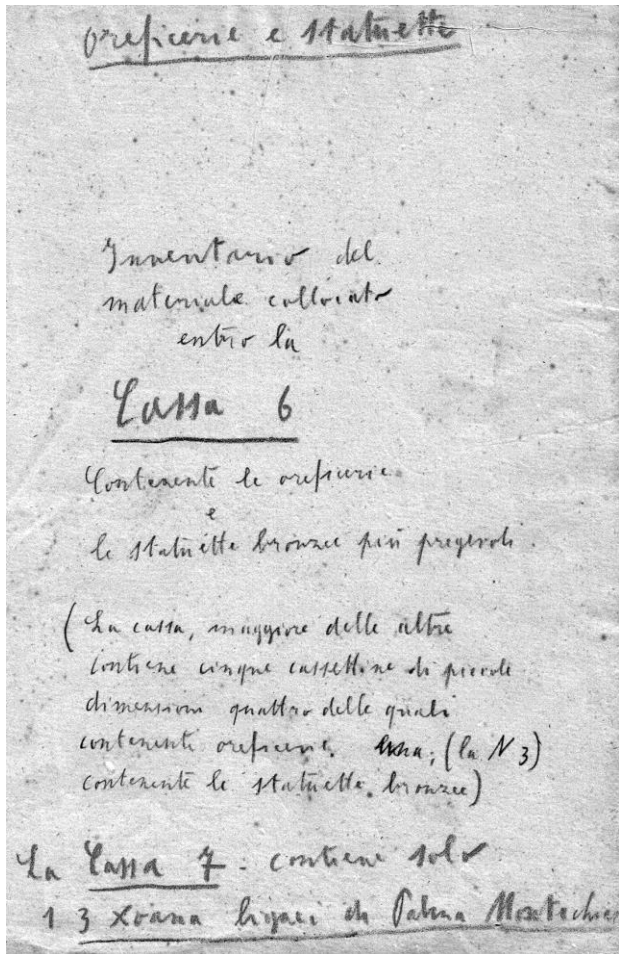 Oreficerie e statuette
Inventario del
materiale collocato
entro la
Cassa 6
Contenente le oreficerie
e
le statuette bronzee più pregevoli.
(La cassa, maggiore delle altre
contiene cinque cassettine di piccole
dimensioni quattro delle quali
contenenti oreficerie, una, (la N 3)
contenente le statuette bronzee)
La Cassa 7 - contiene solo
i 3 xoana lignei di Palma Montechia